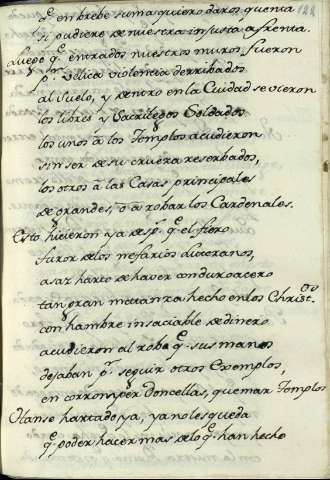 122
q̃ en brebe suma quiero daros quenta
si pudiere de nuestra injusta afrenta.
Luego q̃ entrados nuestros muros fueron
pr. belica violencia derribados
al suelo, y dentro en la Ciudad se vieron
los libres y Sacrilegos Soldados
los unos à los Templos acudieron
sin ser de su crueza reserbados,
los otros à las Casas principales
de grandes, ò à robar los Cardenales.
Esto hicieron ya desp.s q̃ el fiero
furor de los nefarios Luteranos,
asaz harto de haver con duro acero
tan gran matanza hecho en los Christ.os
con hambre insaciable de dinero
acudieron al robo q̃ sus manos
dejaban pr. seguir otros Exemplos,
en corromper Doncellas, quemar Templos
Hanse hartado ya, ya no les queda
q̃ poder hacer mas de lo q̃ han hecho